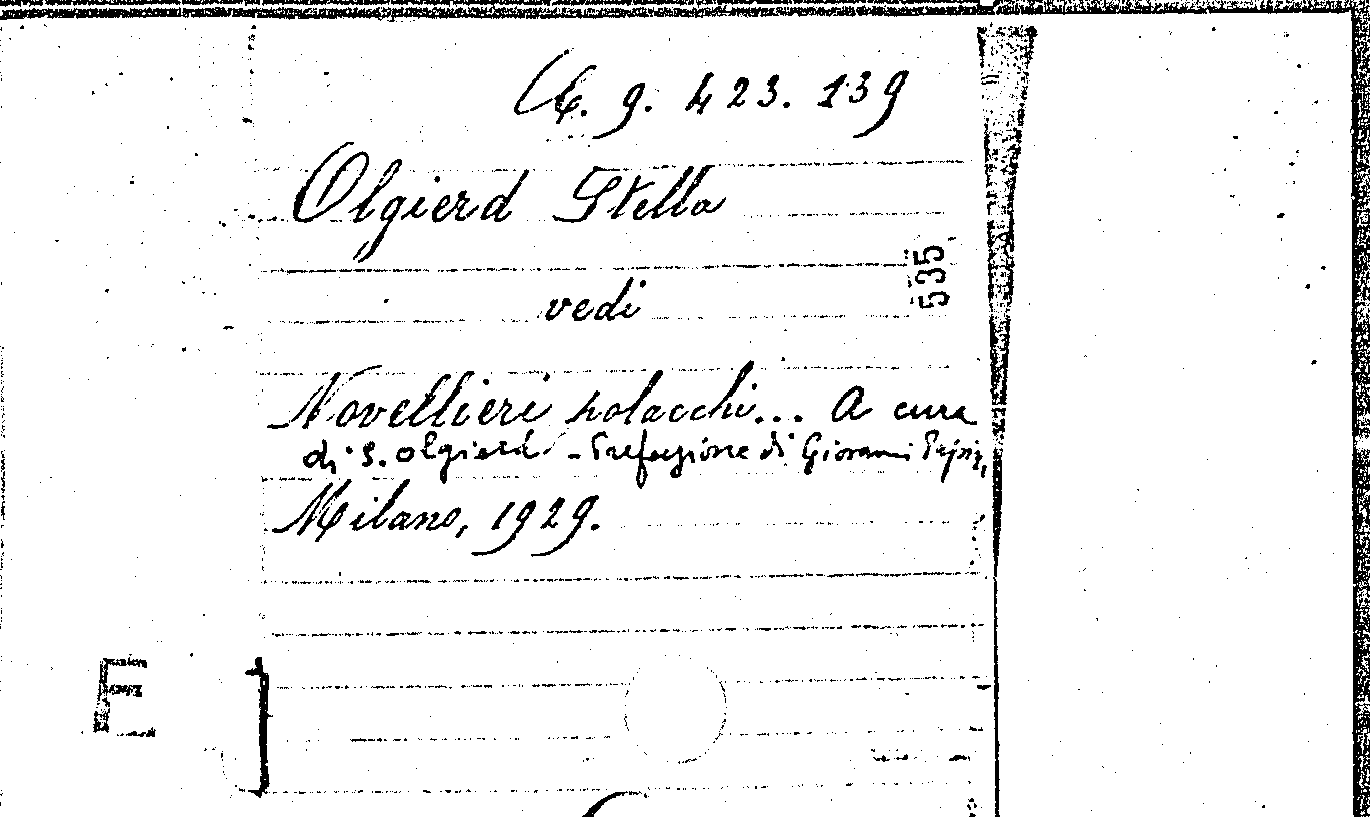 C. g. 423. 139
Olgierd Stella
535
vedi
Novellieri polacchi... A cura
di S. Olgierd - Prefazione di Giovanni
Milano, 1929.
E